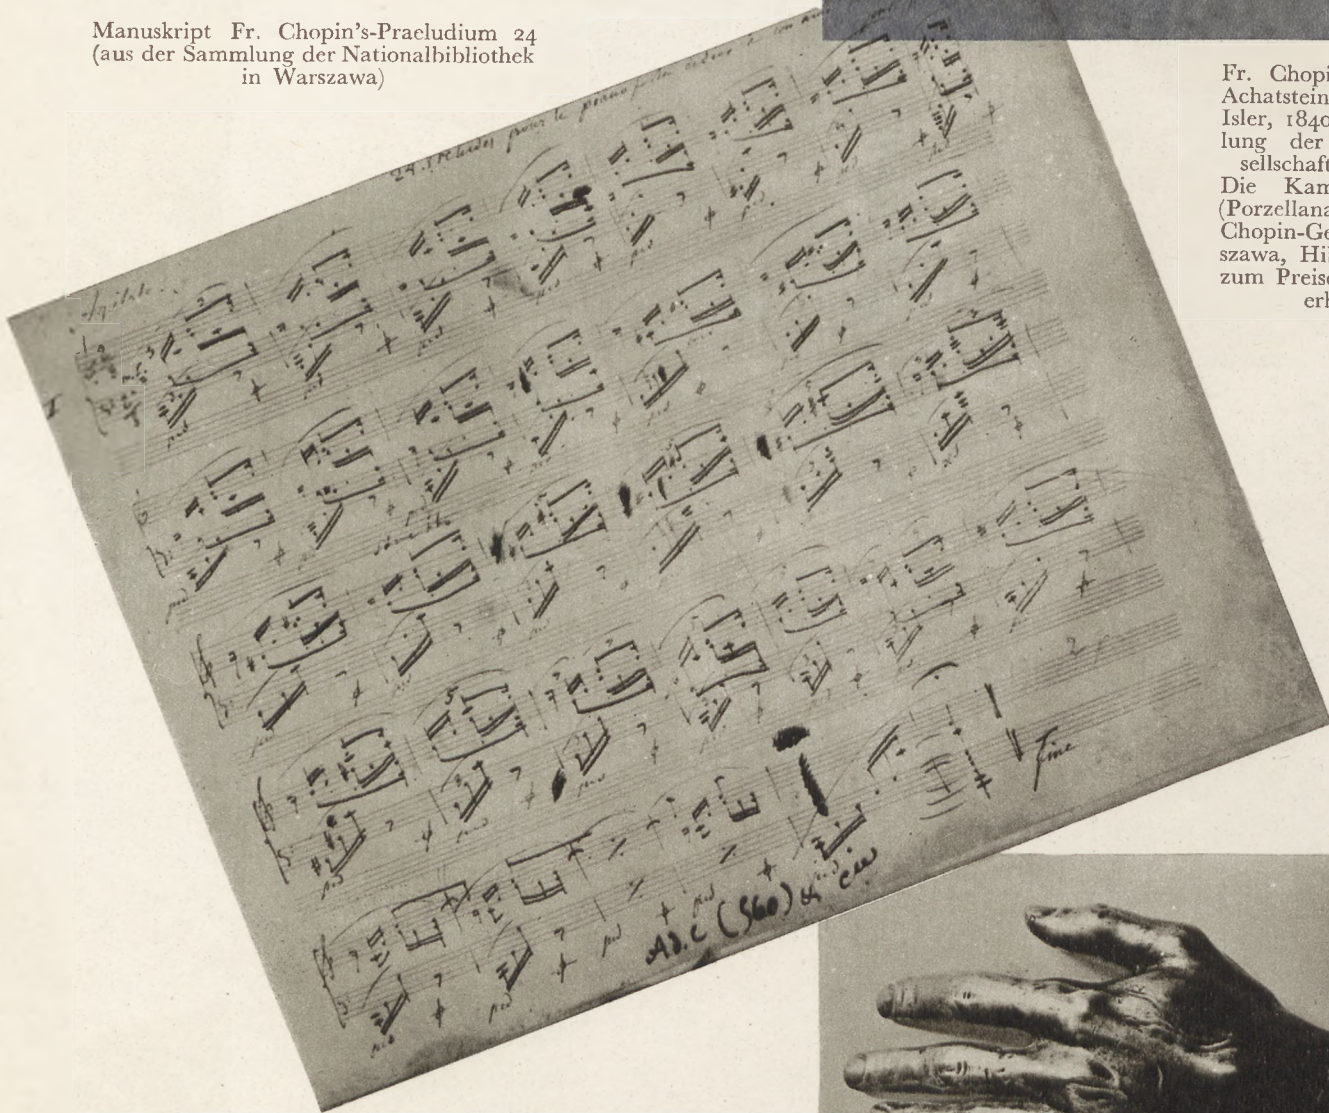 Manuskript Fr. Chopin's-Praeludium 24
(aus der Sammlung der Nationalbibliothek
in Warszawa)
Fr. Chopi
Achatstein
Isler, 1840
lung der
sellschaft
Die Kam
(Porzellana
Chopin-Ge
szawa, Hi
zum Preise
erh
24 Preludes pour le pianoforte
Fine
Ad. C (560) & Cie